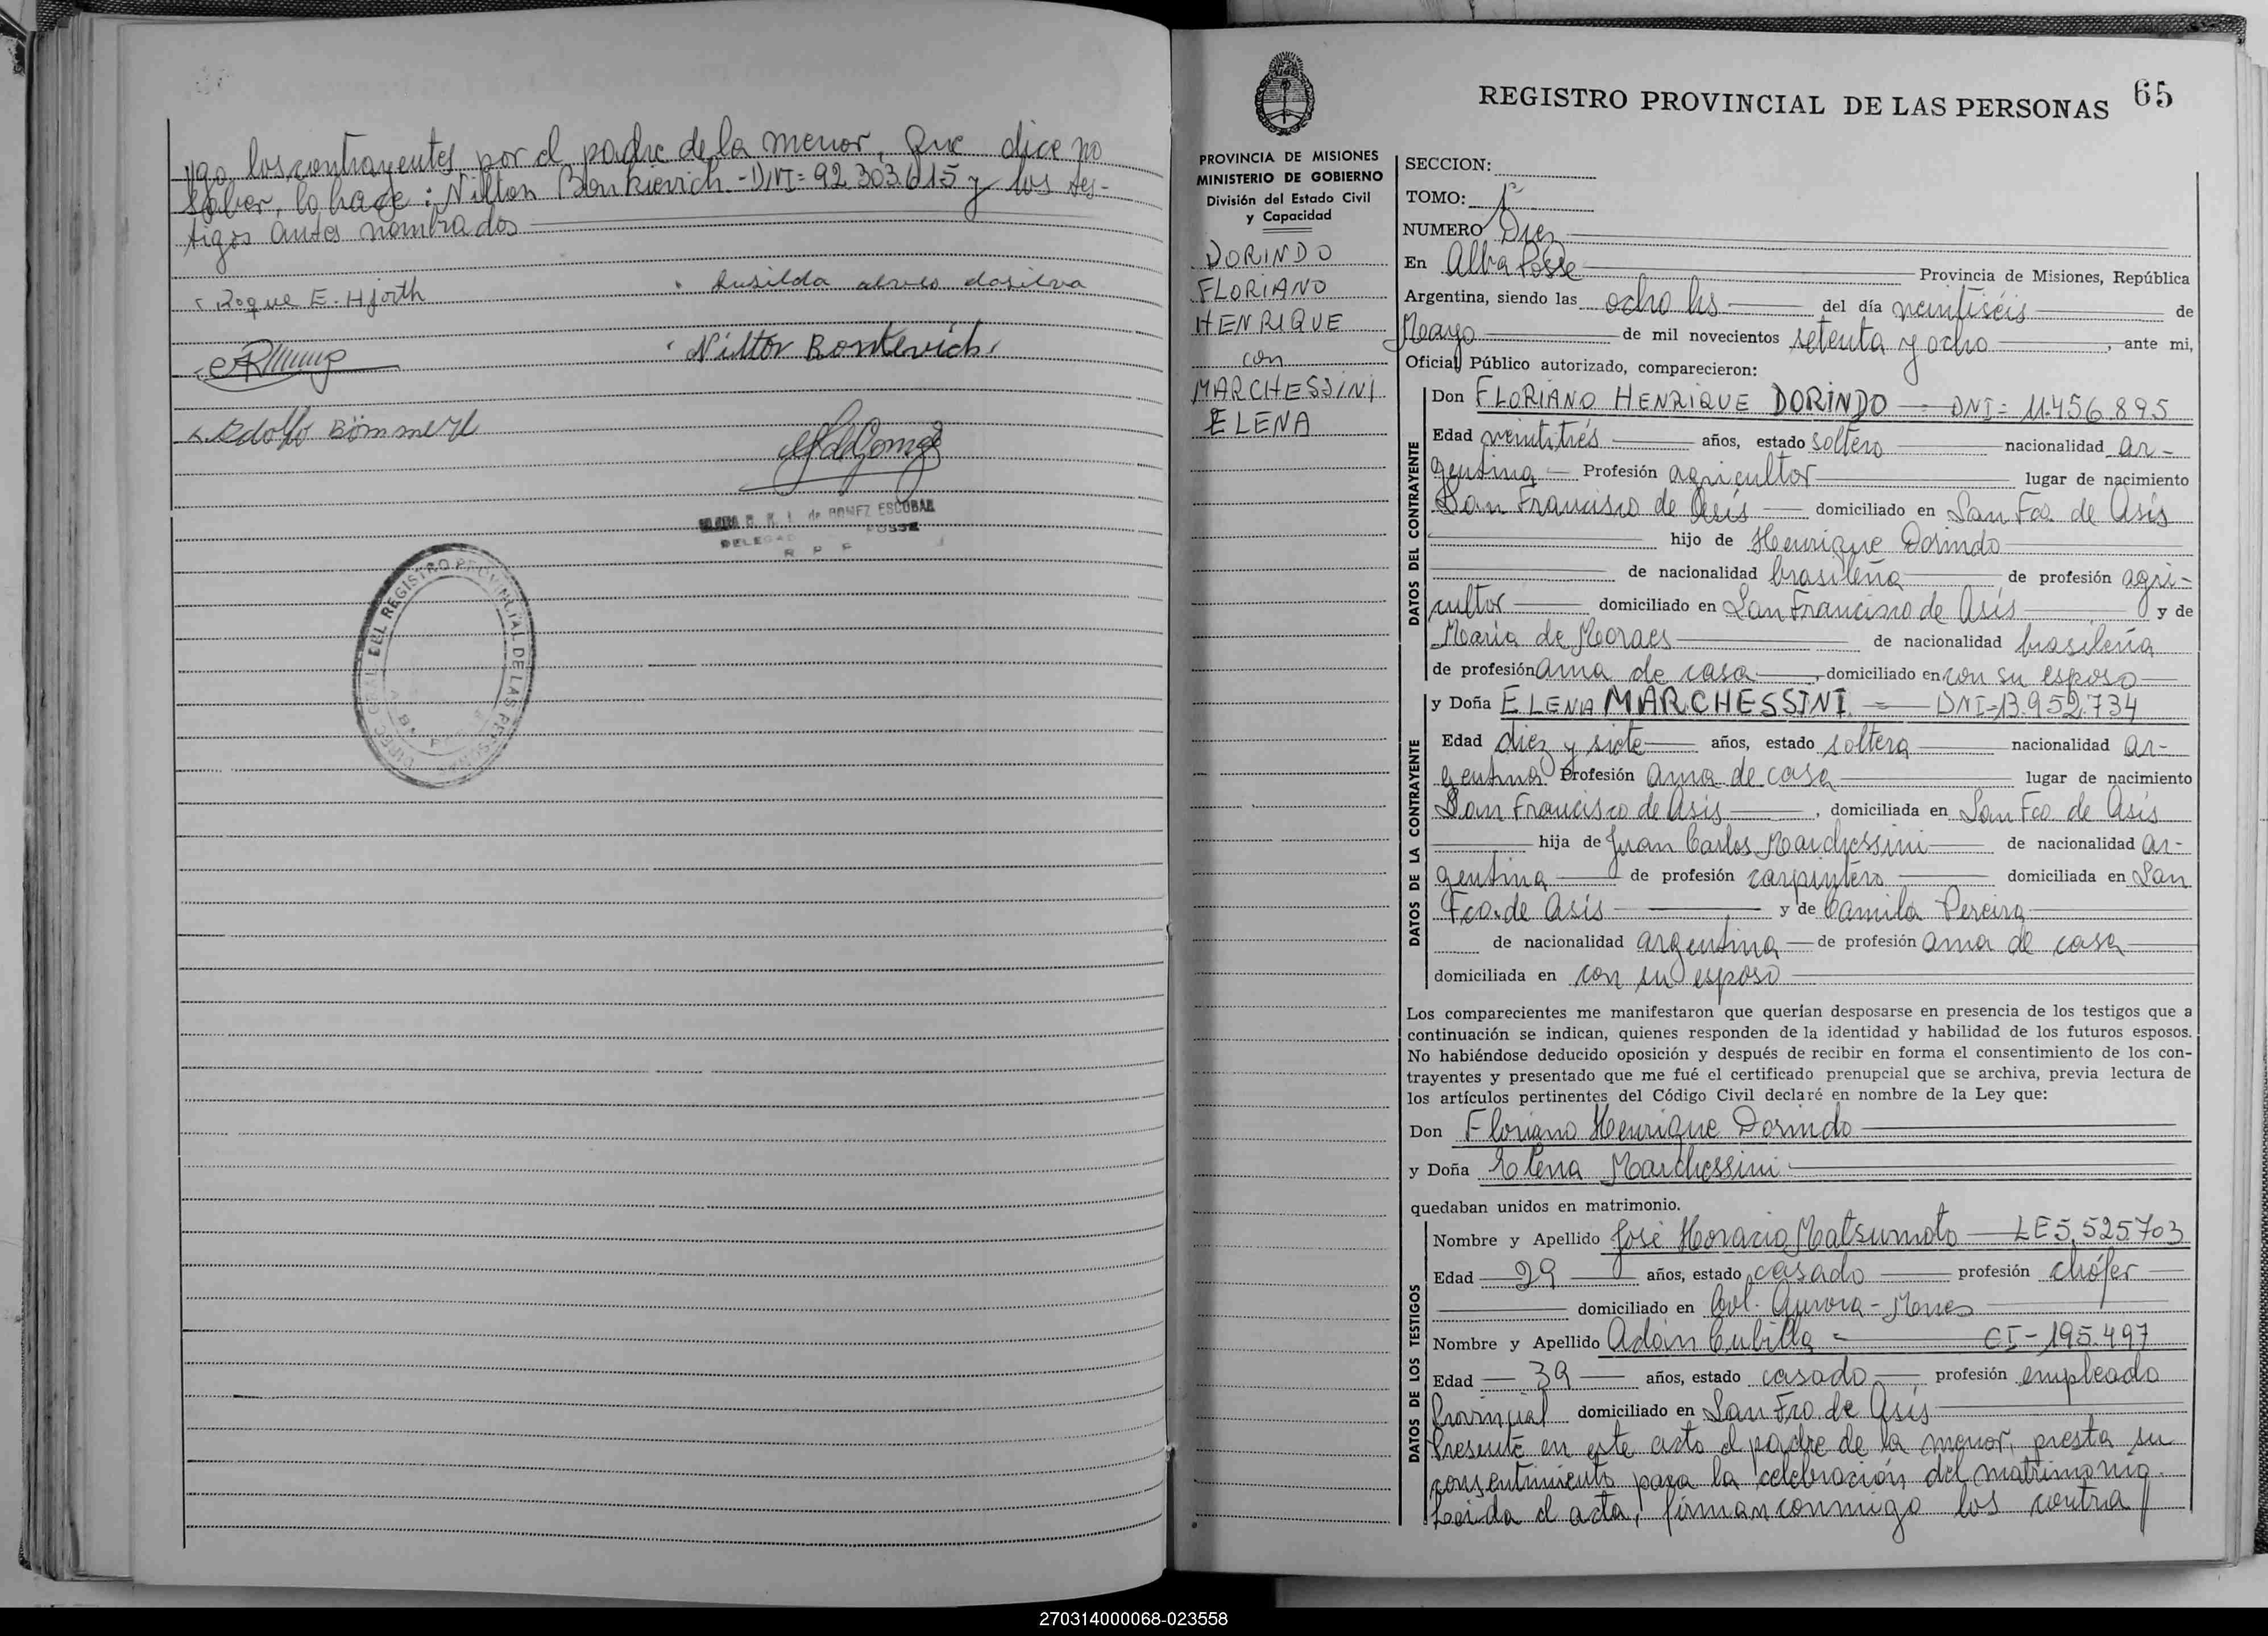 ygo, los contrayentes, por el padre de la menor, que dice no
saber, lo hace: Nilton Bonkievich.-DNI=92.303.615 y los tes-
tigos antes nombrados
Roque E. Hjorth
Lusilda alves dasilva
Nilton Bonkevich
Adolfo Bömmerl
de GOMEZ ESCOBAR
DELEGAD POSSE
R P P
DEL REGISTRO PROVINCIAL DE LAS PERSONAS
REGISTRO PROVINCIAL DE LAS PERSONAS 65
PROVINCIA DE MISIONES
MINISTERIO DE GOBIERNO
División del Estado Civil
y Capacidad
DORINDO
FLORIANO
HENRIQUE
con
MARCHESSINI
ELENA
SECCION:
TOMO: 1º
NUMERO Diez
En Alba Posse Provincia de Misiones, República
Argentina, siendo las ocho hs del día veintiséis de
Mayo de mil novecientos setenta y ocho, ante mi,
Oficial Público autorizado, comparecieron:
DATOS DEL CONTRAYENTE
Don FLORIANO HENRIQUE DORINDO - DNI= 11.456.895
Edad veintitrés años, estado soltero nacionalidad ar-
gentina Profesión agricultor lugar de nacimiento
San Francisco de Asís domiciliado en San Fco. de Asís
hijo de Henrique Dorindo
de nacionalidad brasileña de profesión agri-
cultor domiciliado en San Francisco de Asís y de
María de Moraes de nacionalidad brasileña
de profesión ama de casa, domiciliado en con su esposo
DATOS DE LA CONTRAYENTE
y Doña ELENA MARCHESSINI = DNI=13.952.734
Edad diez y siete años, estado soltera nacionalidad ar-
gentina Profesión ama de casa lugar de nacimiento
San Francisco de Asís, domiciliada en San Fco. de Asís
hija de Juan Carlos Marchessini de nacionalidad ar-
gentina de profesión carpintero domiciliada en San
Fco. de Asís y de Camila Pereira
de nacionalidad argentina de profesión ama de casa
domiciliada en con su esposo
Los comparecientes me manifestaron que querían desposarse en presencia de los testigos que a
continuación se indican, quienes responden de la identidad y habilidad de los futuros esposos.
No habiéndose deducido oposición y después de recibir en forma el consentimiento de los con-
trayentes y presentado que me fué el certificado prenupcial que se archiva, previa lectura de
los artículos pertinentes del Código Civil declaré en nombre de la Ley que:
Don Floriano Henrique Dorindo
y Doña Elena Marchessini
quedaban unidos en matrimonio.
DATOS DE LOS TESTIGOS
Nombre y Apellido José Horacio Matsumoto LE 5.525703
Edad 29 años, estado casado profesión chófer
domiciliado en Cnl. Aurora - Mnes
Nombre y Apellido Adán Cubilla = CI-195.497
Edad 39 años, estado casado profesión empleado
Provincial domiciliado en San Fco. de Asís
Presente en este acto el padre de la menor, presta su
consentimiento para la celebración del matrimonio.
Leída el acta, firman conmigo los contra
270314000068-023558